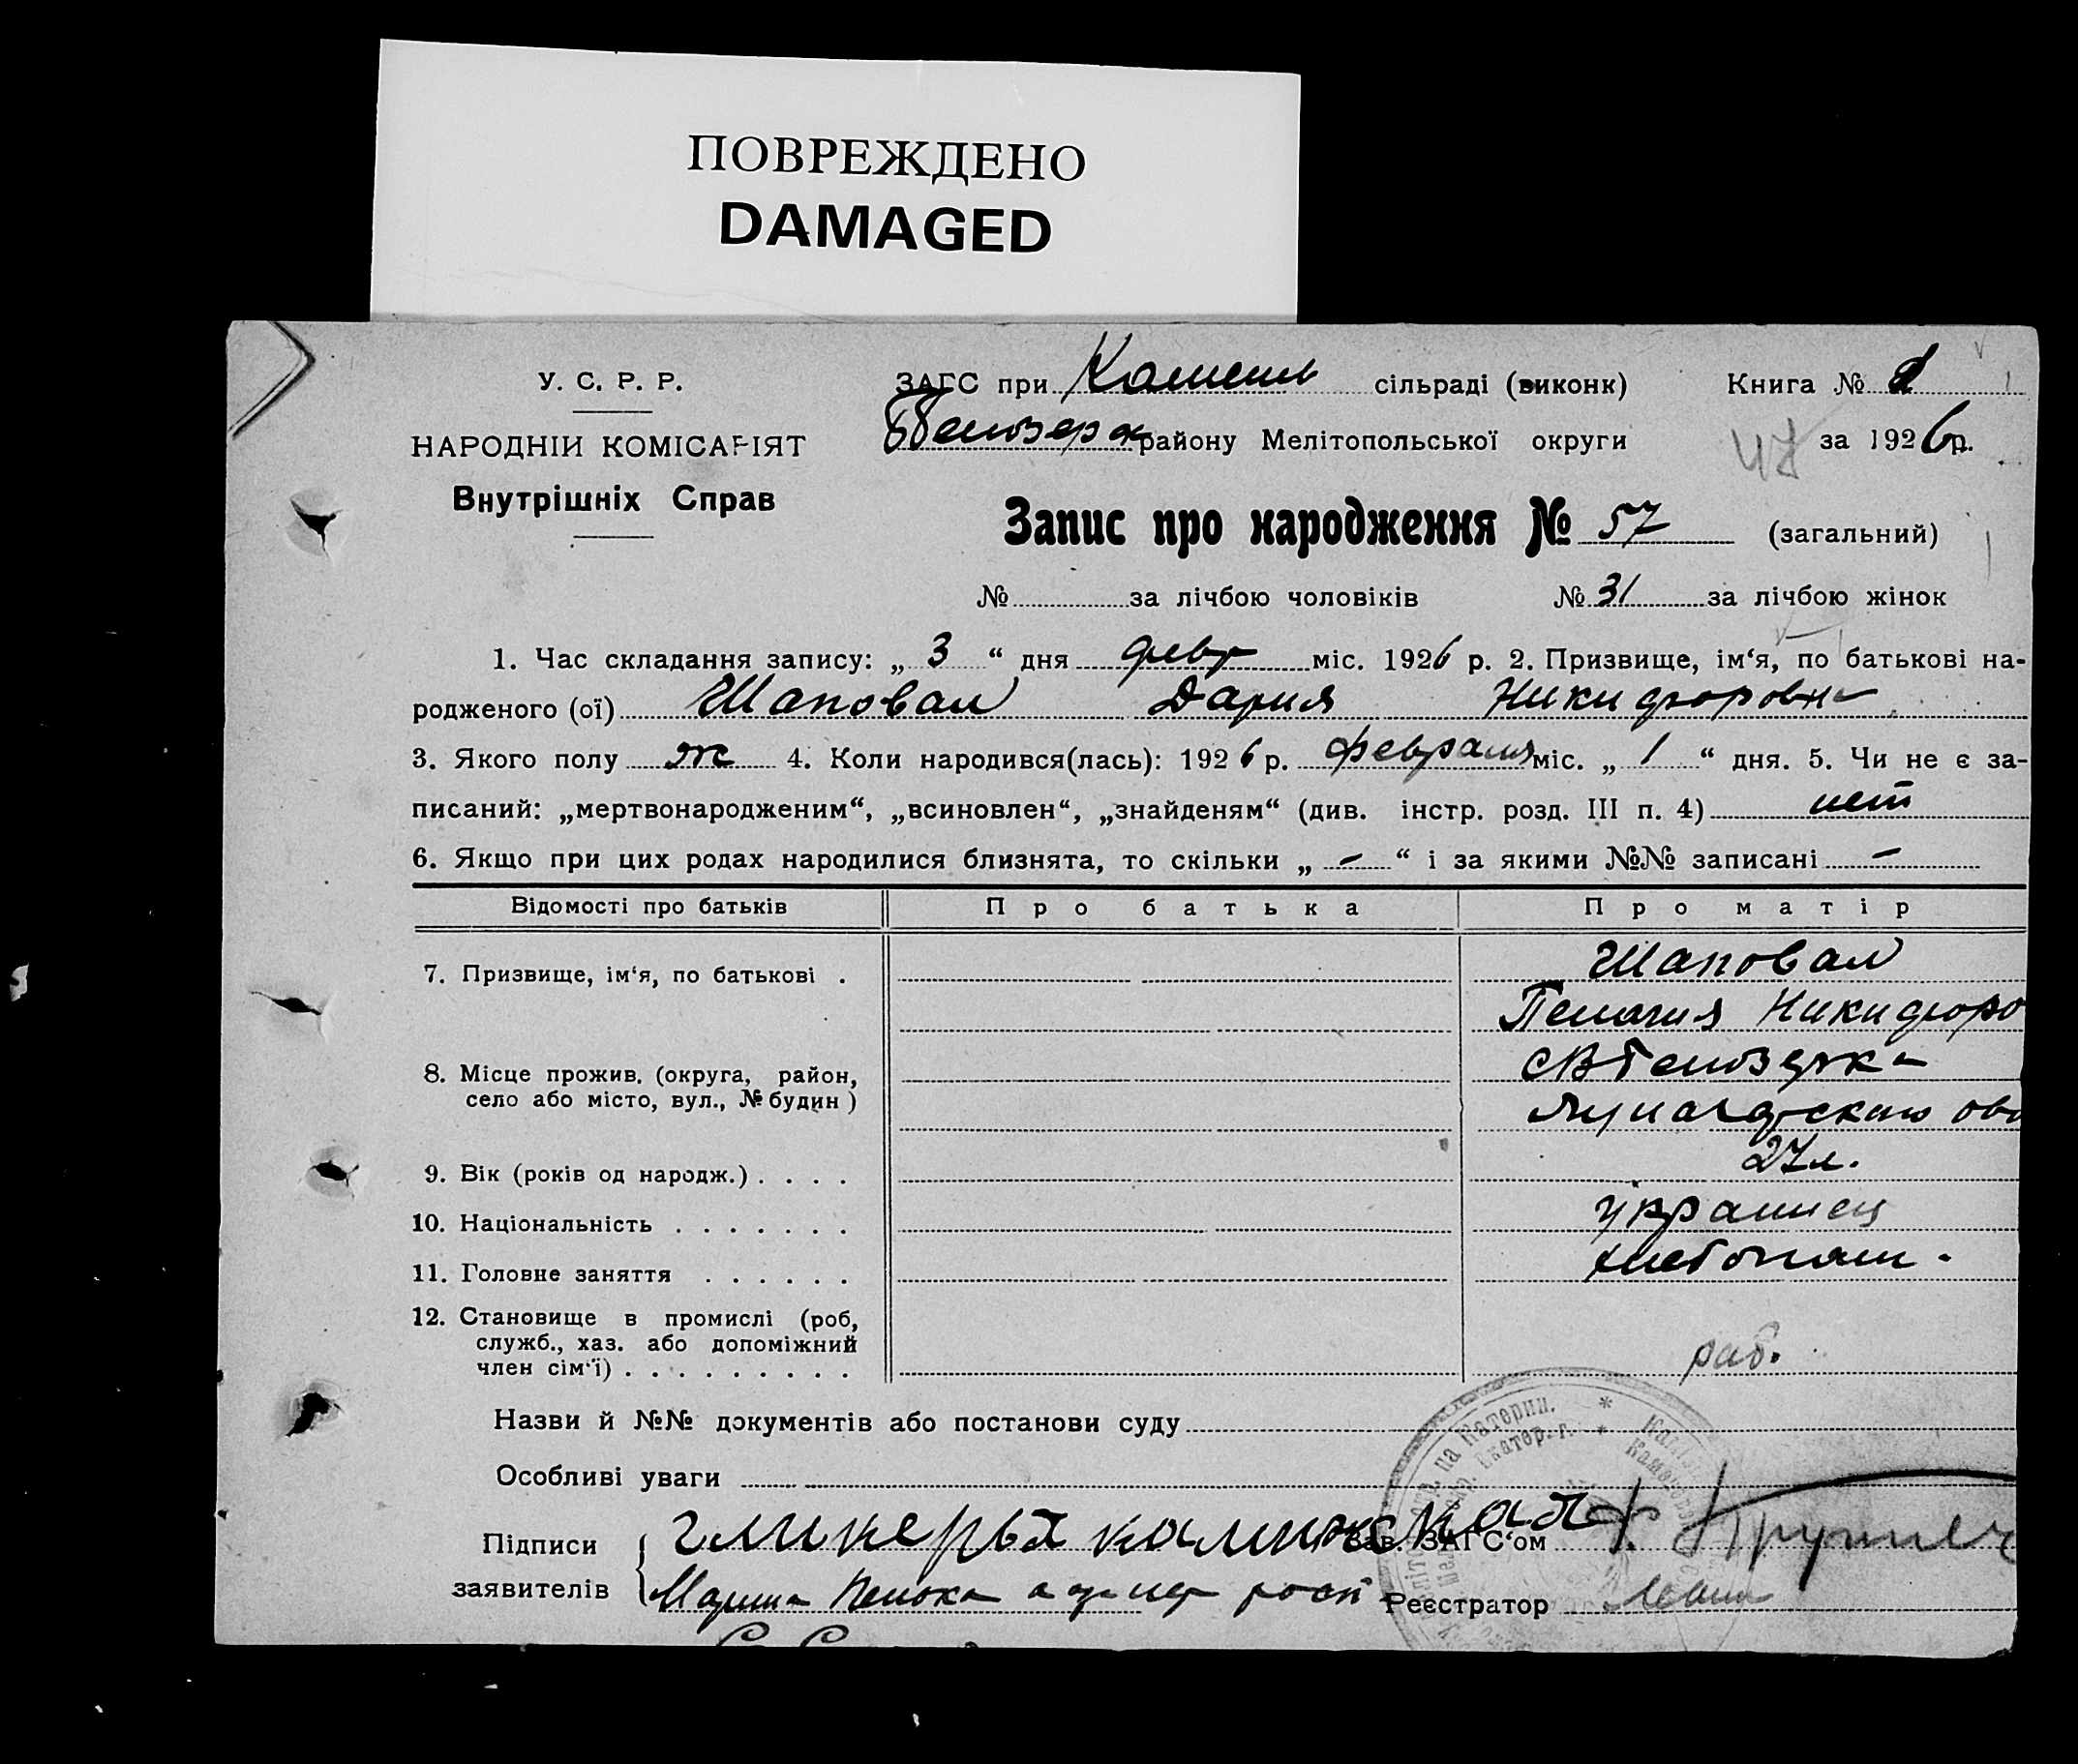 ПОВРЕЖДЕНО
DAMAGED
У. С. Р. Р.
НАРОДНІЙ КОМІСАРІЯТ
Внутрішніх Справ
ЗАГС при сільраді (виконк) Книга №
району Мелітопольської округи за 1926 р.
Запис про народження № 57 (загальний)
№ за лічбою чоловіків № 31 за лічбою жінок
1. Час складання запису: „ 3 “ дня февр міс. 1926 р. 2. Призвище, ім‘я, по батькові на-
родженого (ої) Шаповал Дария Никифоровн
3. Якого полу ж 4. Коли народився(лась): 1926 р. февраля міс. „ 1 “ дня. 5. Чи не є за-
писаний: „мертвонародженим“, „всиновлен“, „знайденям“ (див. інстр. розд. III п. 4) нет
6. Якщо при цих родах народилися близнята, то скільки „ – “ і за якими №№ записані –
Відомості про батьків Про батька Про матір
7. Призвище, ім‘я, по батькові . Шаповал
Пелагия Никифоро
8. Місце прожив. (округа, район,
село або місто, вул., № будин )
9. Вік (років од народж.) . . . . 27 л.
10. Національність . . . . . . . украинец
11. Головне заняття . . . . . . хлебопаш.
12. Становище в промислі (роб,
служб., хаз. або допоміжний
член сім‘ї) . . . . . . . . . раб.
Назви й №№ документів або постанови суду
Особливі уваги
Підписи гликерья Зав. ЗАГС‘ом
заявителів Реєстратор